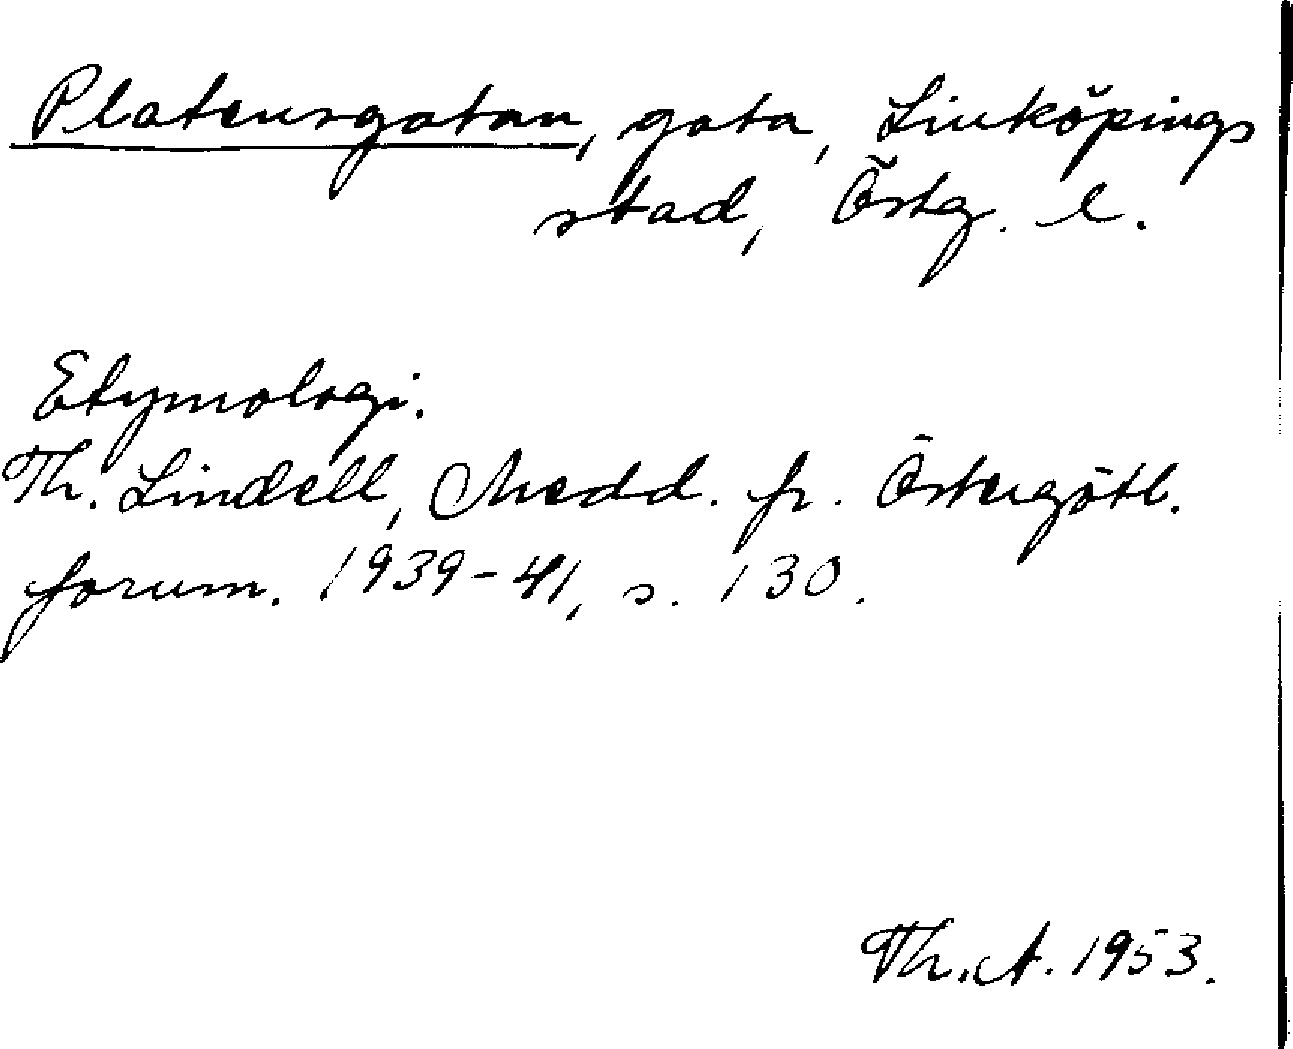 Platensgatan, gata, Linköpings
stad, Östg. l.
Etymologi.
Th. Lindell, Medd. fr. Östergötl.
fornm. 1939-41, s. 130.
Th. A. 1953.